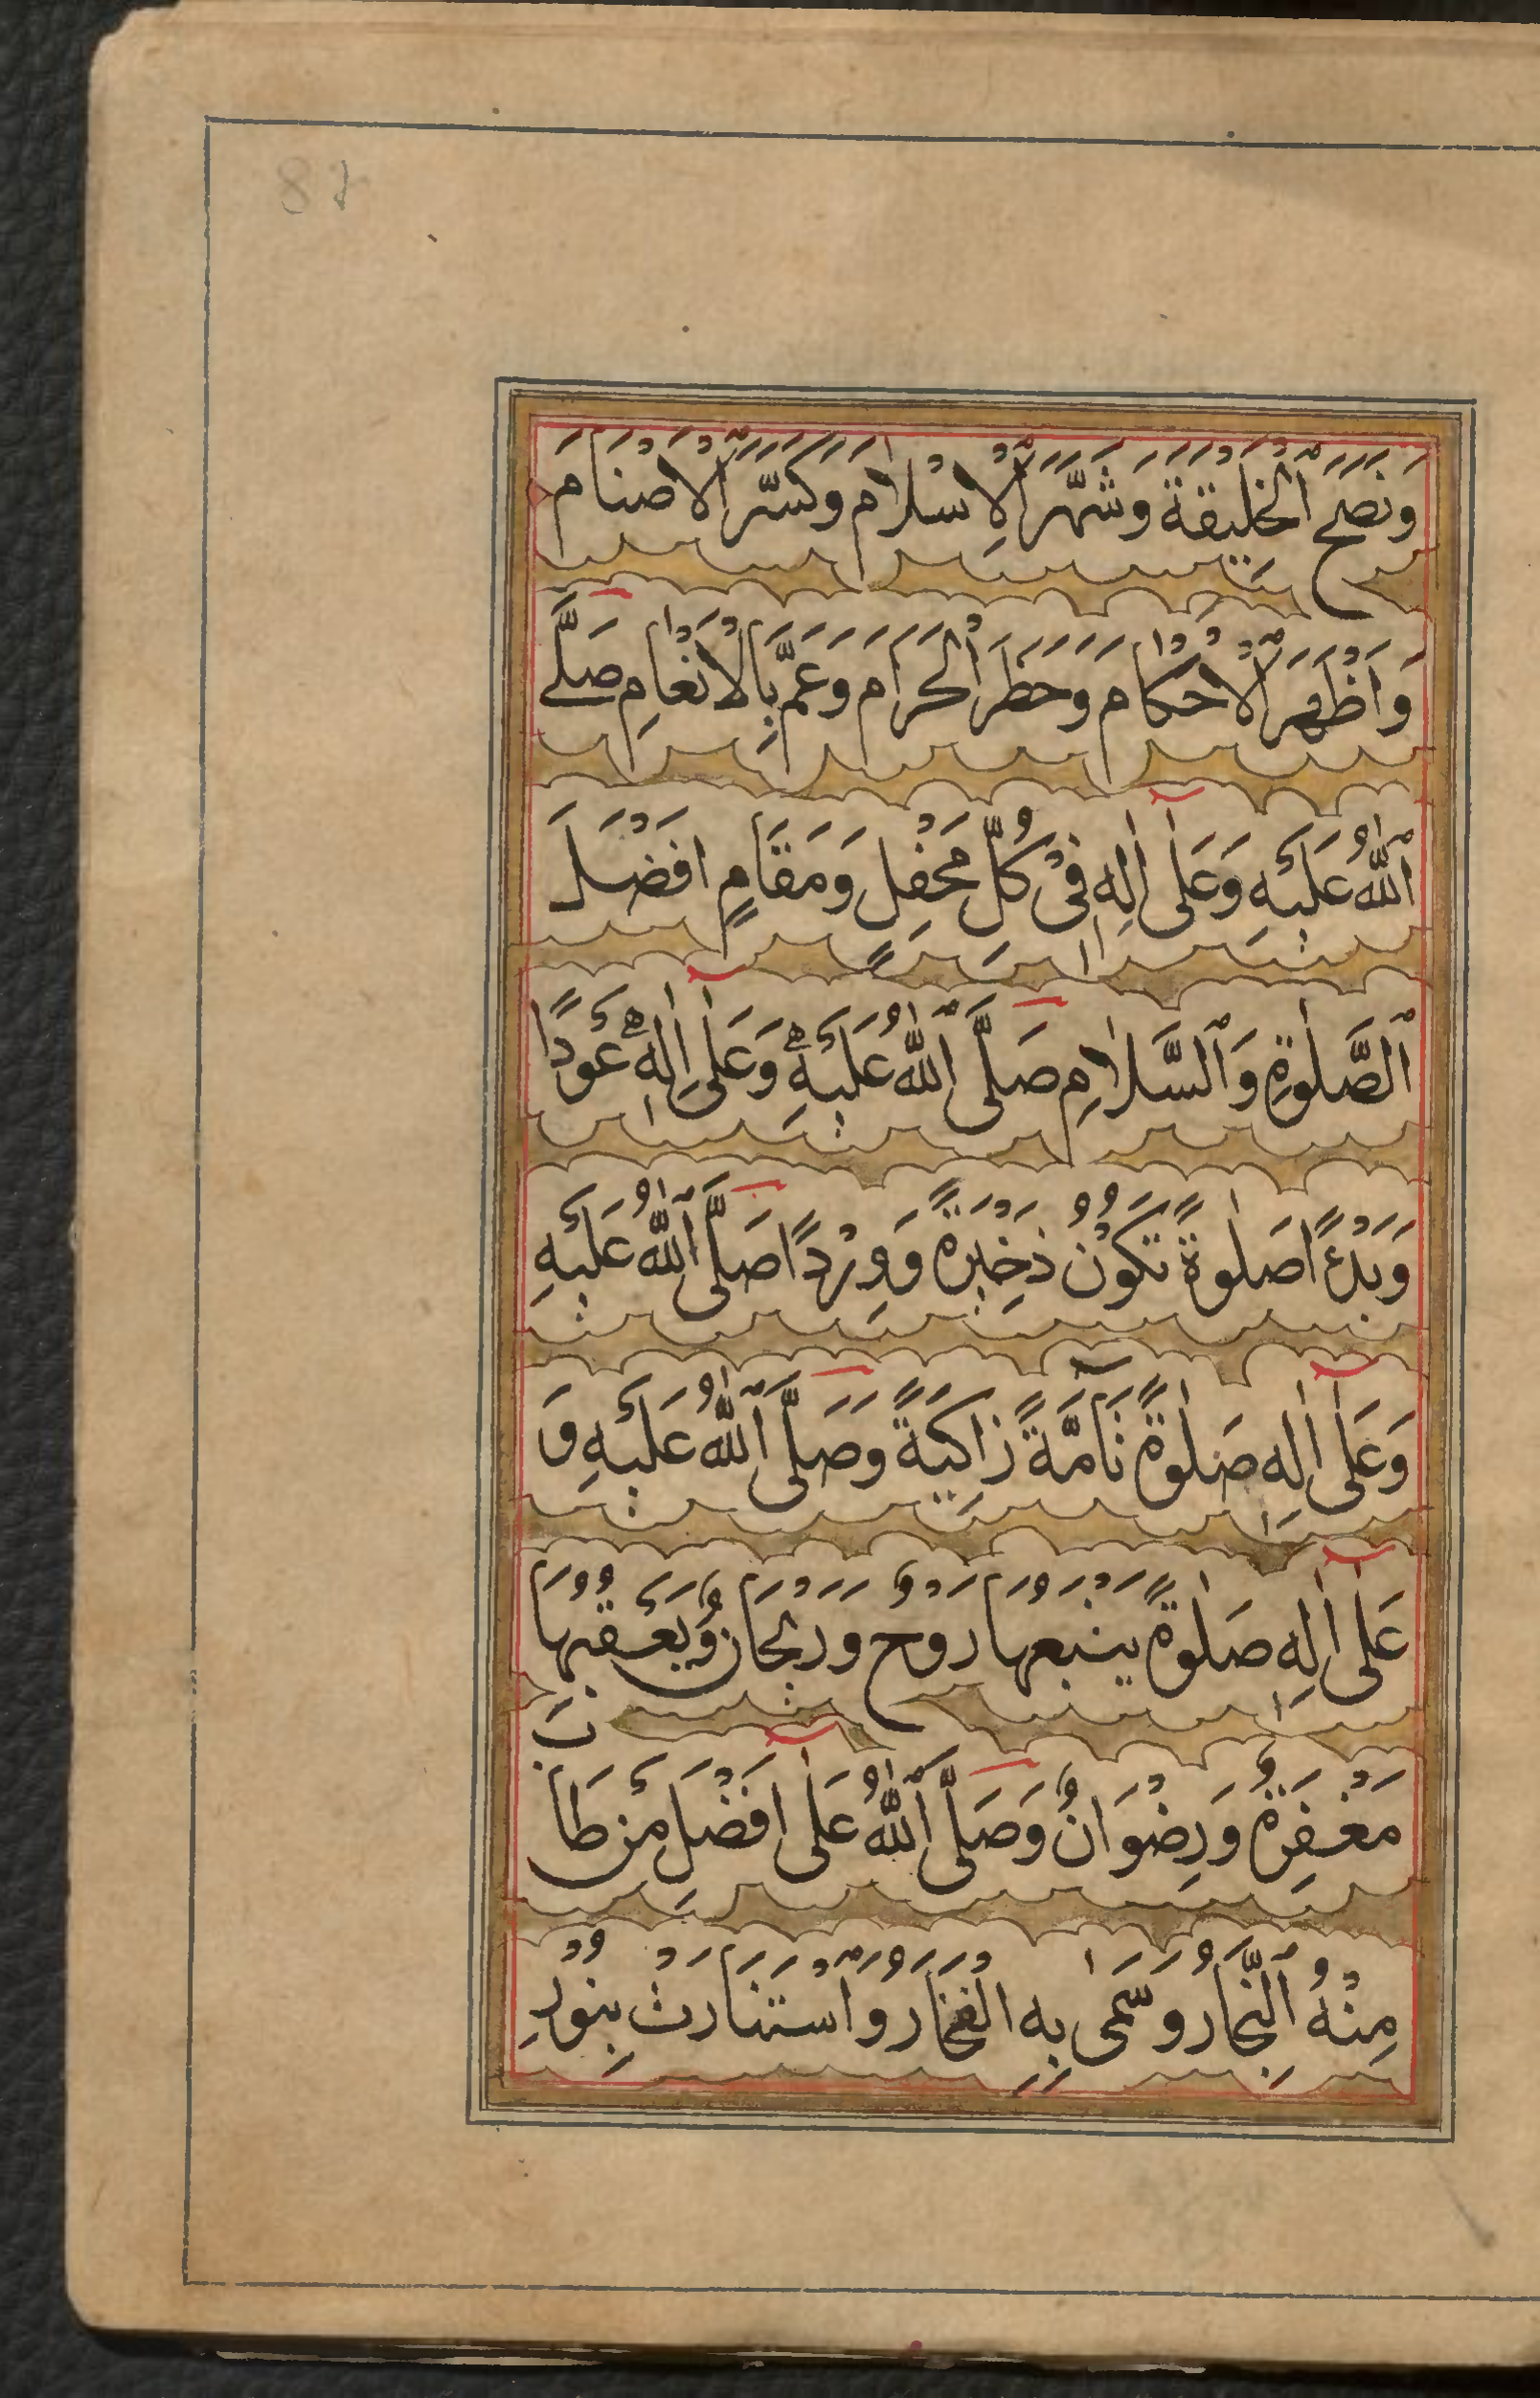 وَنَصَحَ ٱلْخَلِيقَةَ وَشَهَّرَ ٱلْاِسْلَامَ وَكَسَّرَ ٱلْاَصْنَامَ
وَاَظْهَرَ ٱلْاَحْكَامَ وَحَظَرَ ٱلْحَرَامَ وَعَمَّ بِالْاَنْعَامِ صَلَّى
ٱللّٰهُ عَلَيْهِ وَعَلٰٓى اٰلِهِ فِيْ كُلِّ مَحْفِلٍ وَمَقَامٍ اَفْضَلَ
ٱلصَّلٰوةِ وَٱلسَّلَامِ صَلَّى ٱللّٰهُ عَلَيْهِ وَعَلٰٓى اٰلِهٖ عَوْدًا
وَبَدْءًا صَلٰوةً تَكُوْنُ ذَخِيْرَةً وَوِرْدًا صَلَّى ٱللّٰهُ عَلَيْهِ
وَعَلٰٓى اٰلِهِ صَلٰوةً تَآمَّةً زَاكِيَةً وَصَلَّى ٱللّٰهُ عَلَيْهِ وَ
عَلٰٓى اٰلِهِ صَلٰوةً يَتْبَعُهَا رَوْحٌ وَرَيْحَانٌ وَيَعْقُبُهَا
مَغْفِرَةٌ وَرِضْوَانٌ وَصَلَّى ٱللّٰهُ عَلٰٓى اَفْضَلِ مَنْ طَابَ
مِنْهُ ٱلنِّجَارُ وَسَمٰى بِهِ الْفَخَارُ وَٱسْتَنَارَتْ بِنُوْرِ